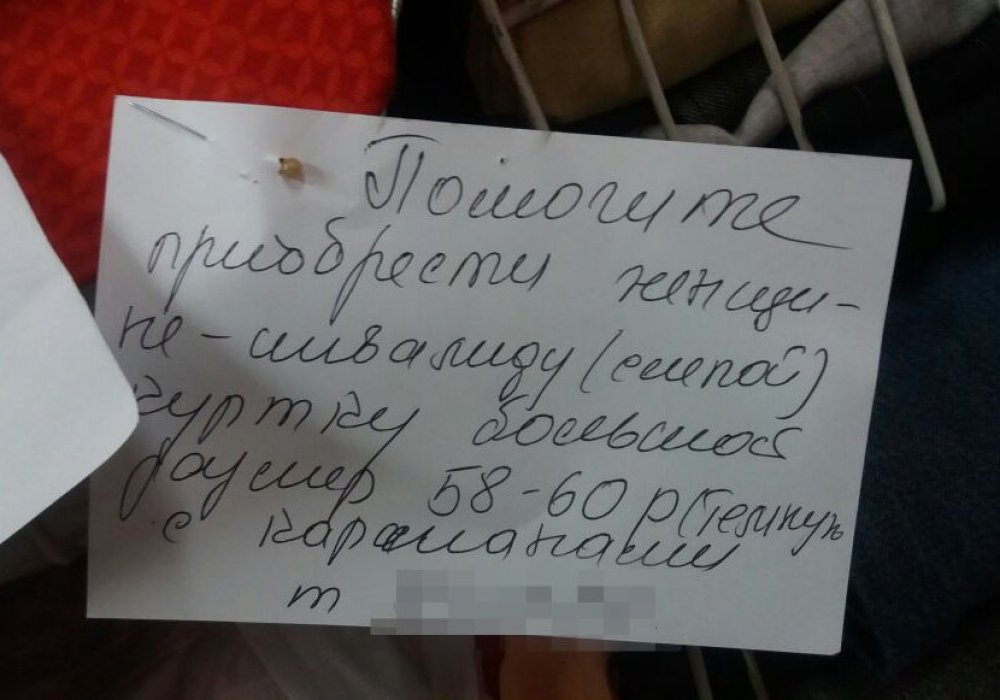 Помогите
приобрести женщи-
не-инвалиду (слепой)
куртку большой
размер 58-60 р (теплую
с карманами
т